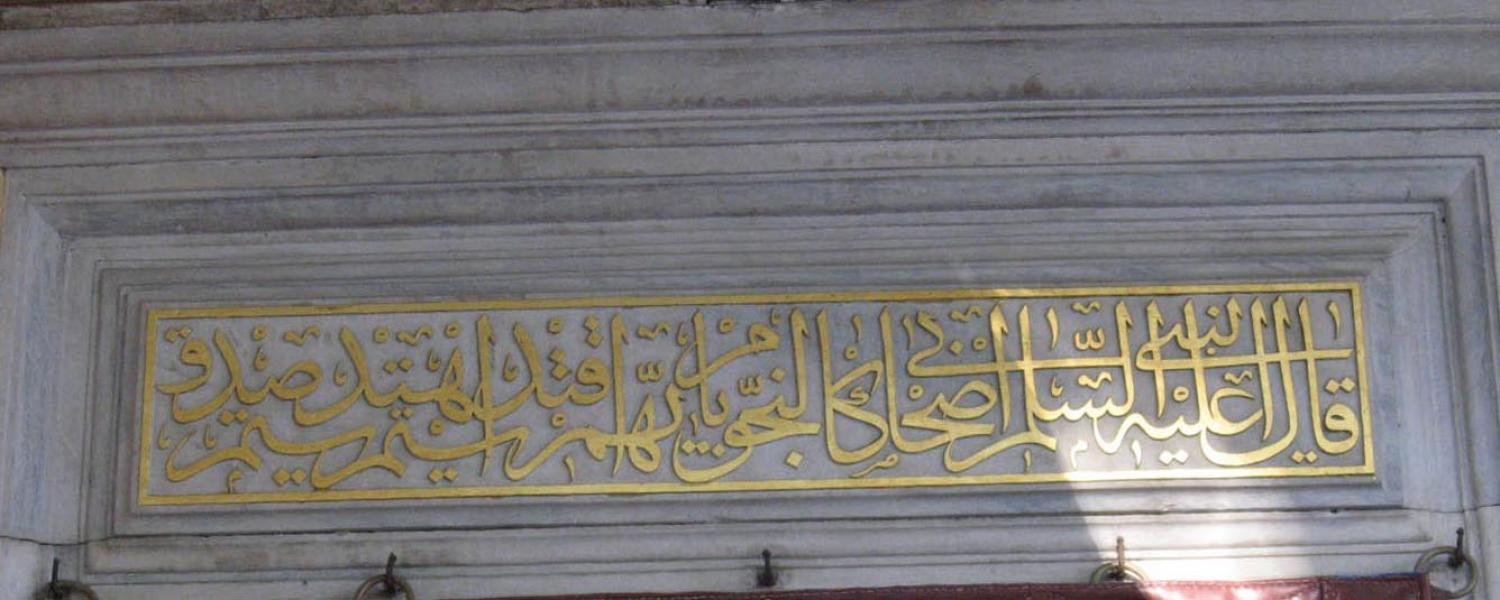 قال النبي عليه السلام اصحابي كالنجوم بايهم اقتديتم اهتديتم صدق